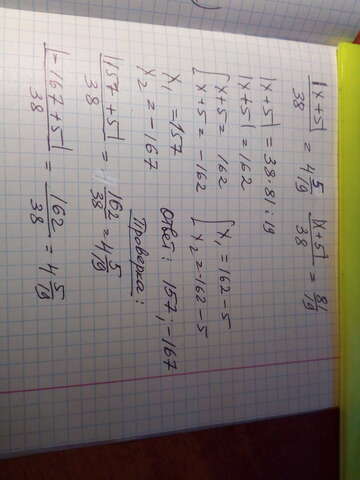 |x+5|/38 = 4 5/19   |x+5|/38 = 81/19
|x+5| = 38·81:19
|x+5| = 162
[x+5 = 162   [x₁ = 162-5
[x+5 = -162   [x₂ = -162-5
x₁ = 157
x₂ = -167   Ответ: 157; -167
Проверка:
|157+5|/38 = 162/38 = 4 5/19
|-167+5|/38 = 162/38 = 4 5/19